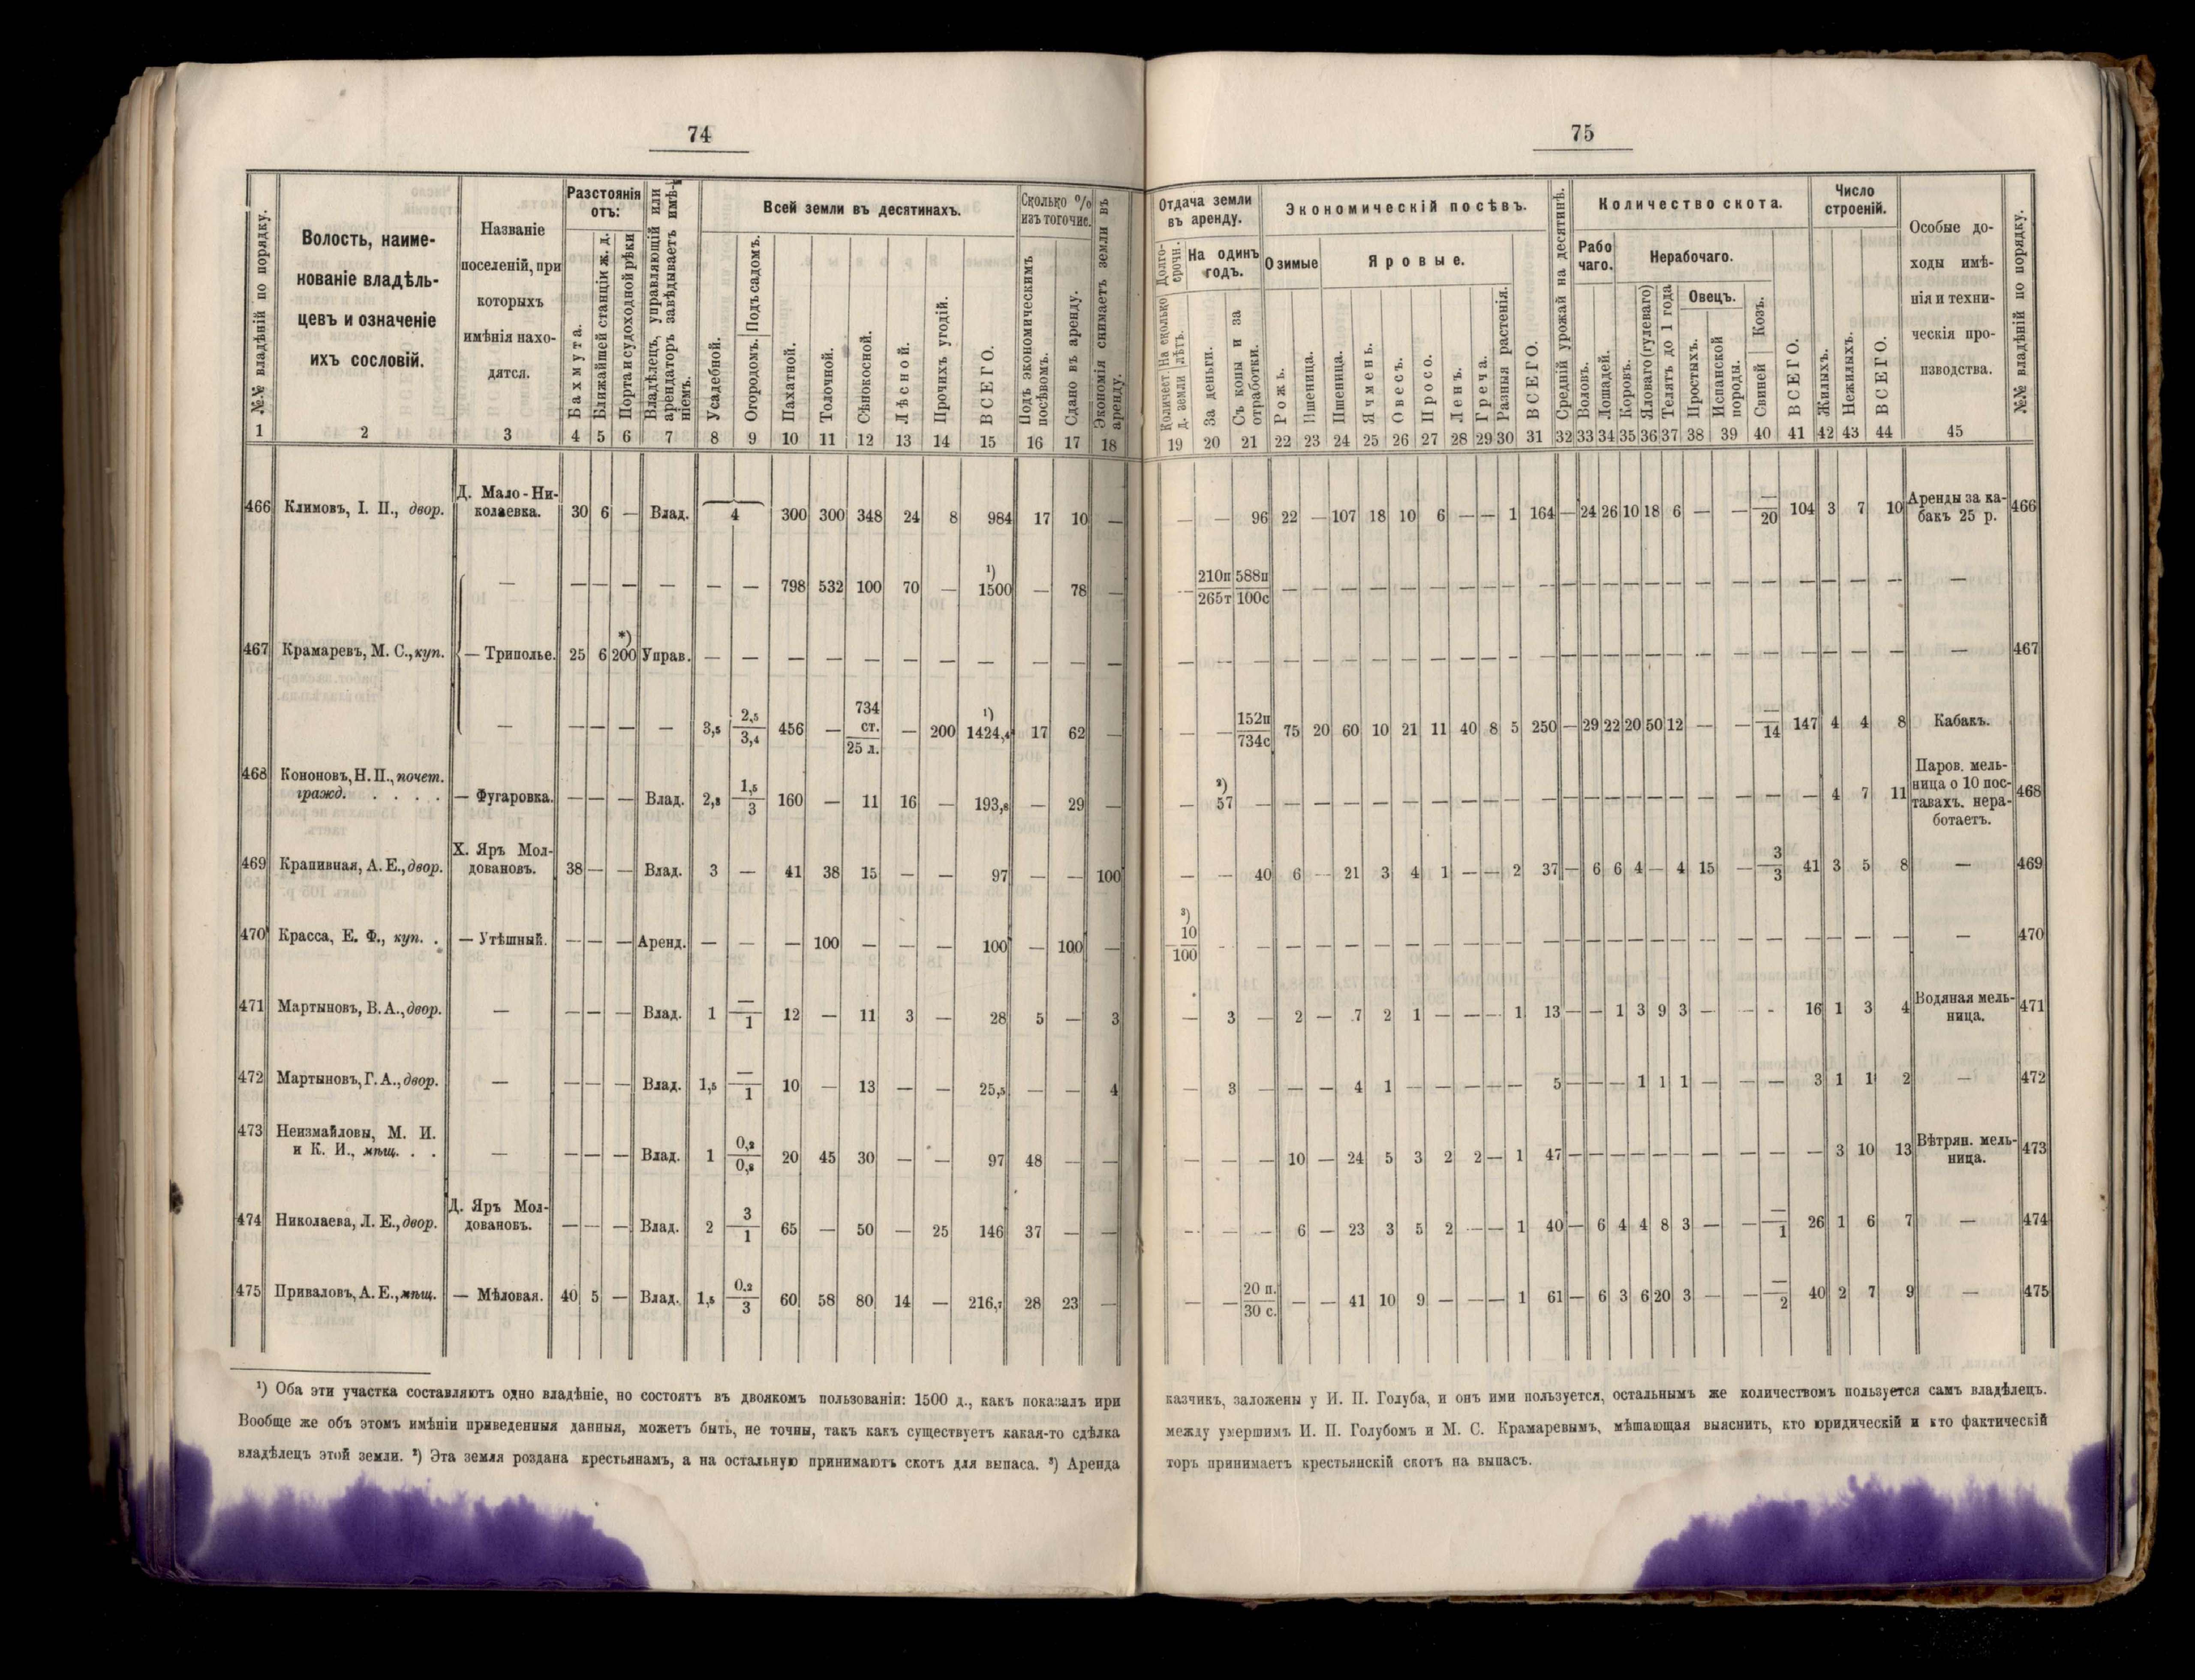 74
№№ владѣній по порядку.
Волость, наиме-
нованіе владѣль-
цевъ и означеніе
ихъ сословій.
Названіе
поселеній, при
которыхъ
имѣнія нахо-
дятся.
Разстоянія
отъ:
Бахмута.
Ближайшей станціи ж. д.
Порта и судоходной рѣки
Владѣлецъ, управляющій или
арендаторъ завѣдываетъ имѣ-
ніемъ.
Всей земли въ десятинахъ.
Усадебной.
Огородомъ. Подъ садомъ.
Пахатной.
Толочной.
Сѣнокосной.
Лѣсной.
Прочихъ угодій.
ВСЕГО.
Сколько %
изъ того чис.
Подъ экономическимъ
посѣвомъ.
Сдано въ аренду.
Экономія снимаетъ земли въ
аренду.
1 2 3 4 5 6 7 8 9 10 11 12 13 14 15 16 17 18
466 Климовъ, І. П., двор. Д. Мало-Ни-
колаевка. 30 6 — Влад. 4 300 300 348 24 8 984 17 10 —
— — — — — — — 798 532 100 70 — ¹) 1500 — 78 —
467 Крамаревъ, М. С., куп. — Триполье. 25 6 *) 200 Управ. — — — — — — — — — — —
— — — — — 3,5 2,5/3,4 456 — 734 ст./25 л. — 200 ¹) 1424,4 17 62 —
468 Кононовъ, Н. П., почет.
гражд. . . . . — Фугаровка. — — — Влад. 2,8 1,5/3 160 — 11 16 — 193,8 — 29 —
469 Крапивная, А. Е., двор. Х. Яръ Мол-
довановъ. 38 — — Влад. 3 — 41 38 15 — — 97 — — 100
470 Красса, Е. Ф., куп. . — Утѣшный. — — — Аренд. — — — 100 — — — 100 — 100 —
471 Мартыновъ, В. А., двор. — — — — Влад. 1 —/1 12 — 11 3 — 28 5 — 3
472 Мартыновъ, Г. А., двор. — — — — Влад. 1,5 —/1 10 — 13 — — 25,5 — — 4
473 Неизмайловы, М. И.
и К. И., мѣщ. . . — — — — Влад. 1 0,2/0,8 20 45 30 — — 97 48 — —
474 Николаева, Л. Е., двор. Д. Яръ Мол-
довановъ. — — — Влад. 2 3/1 65 — 50 — 25 146 37 — —
475 Приваловъ, А. Е., мѣщ. — Мѣловая. 40 5 — Влад. 1,5 0,2/3 60 58 80 14 — 216,7 28 23 —
¹) Оба эти участка составляютъ одно владѣніе, но состоятъ въ двоякомъ пользованіи: 1500 д., какъ показалъ при
Вообще же объ этомъ имѣніи приведенныя данныя, можетъ быть, не точны, такъ какъ существуетъ какая-то сдѣлка
владѣлецъ этой земли. ²) Эта земля роздана крестьянамъ, а на остальную принимаютъ скотъ для выпаса. ³) Аренда
75
Отдача земли
въ аренду.
Долго-
срочн.
Количест. На сколько
д. земли лѣтъ.
На одинъ
годъ.
За деньги.
Съ копы и за
отработки.
Экономическій посѣвъ.
Озимые
Рожь.
Пшеница.
Яровые.
Пшеница.
Ячмень.
Овесъ.
Просо.
Ленъ.
Греча.
Разныя растенія.
ВСЕГО.
Средній урожай на десятинѣ.
Количество скота.
Рабо
чаго.
Воловъ.
Лошадей.
Нерабочаго.
Коровъ.
Яловаго (гулеваго)
Телятъ до 1 года
Овецъ.
Простыхъ.
Испанской
породы.
Свиней Козъ.
ВСЕГО.
Число
строеній.
Жилыхъ.
Нежилыхъ.
ВСЕГО.
Особые до-
ходы имѣ-
нія и техни-
ческія про-
изводства.
№№ владѣній по порядку.
19 20 21 22 23 24 25 26 27 28 29 30 31 32 33 34 35 36 37 38 39 40 41 42 43 44 45
— — 96 22 — 107 18 10 6 — — 1 164 — 24 26 10 18 6 — — —/20 104 3 7 10 Аренды за ка-
бакъ 25 р. 466
— 210п/265т 588п/100с — — — — — — — — — — — — — — — — — — — — — — — —
— — — — — — — — — — — — — — — — — — — — — — — — — — — 467
— — 152п/734с 75 20 60 10 21 11 40 8 5 250 — 29 22 20 50 12 — — —/14 147 4 4 8 Кабакъ.
— ²) 57 — — — — — — — — — — — — — — — — — — — — — 4 7 11 Паров. мель-
ница о 10 пос-
тавахъ. нера-
ботаетъ. 468
— — 40 6 — 21 3 4 1 — — 2 37 — 6 6 4 — 4 15 — 3/3 41 3 5 8 — 469
³) 10/100 — — — — — — — — — — — — — — — — — — — — — — — — — — 470
— 3 — 2 — 7 2 1 — — — 1 13 — — 1 3 9 3 — — - 16 1 3 4 Водяная мель-
ница. 471
— 3 — — — 4 1 — — — — — 5 — — — 1 1 1 — — — 3 1 1 2 — 472
— — — 10 — 24 5 3 2 2 — 1 47 — — — — — — — — — — 3 10 13 Вѣтрян. мель-
ница. 473
— — — 6 — 23 3 5 2 — — 1 40 — 6 4 4 8 3 — — —/1 26 1 6 7 — 474
— — 20 п./30 с. — — 41 10 9 — — — 1 61 — 6 3 6 20 3 — — —/2 40 2 7 9 — 475
казчикъ, заложены у И. П. Голуба, и онъ ими пользуется, остальнымъ же количествомъ пользуется самъ владѣлецъ.
между умершимъ И. П. Голубомъ и М. С. Крамаревымъ, мѣшающая выяснить, кто юридическій и кто фактическій
торъ принимаетъ крестьянскій скотъ на выпасъ.